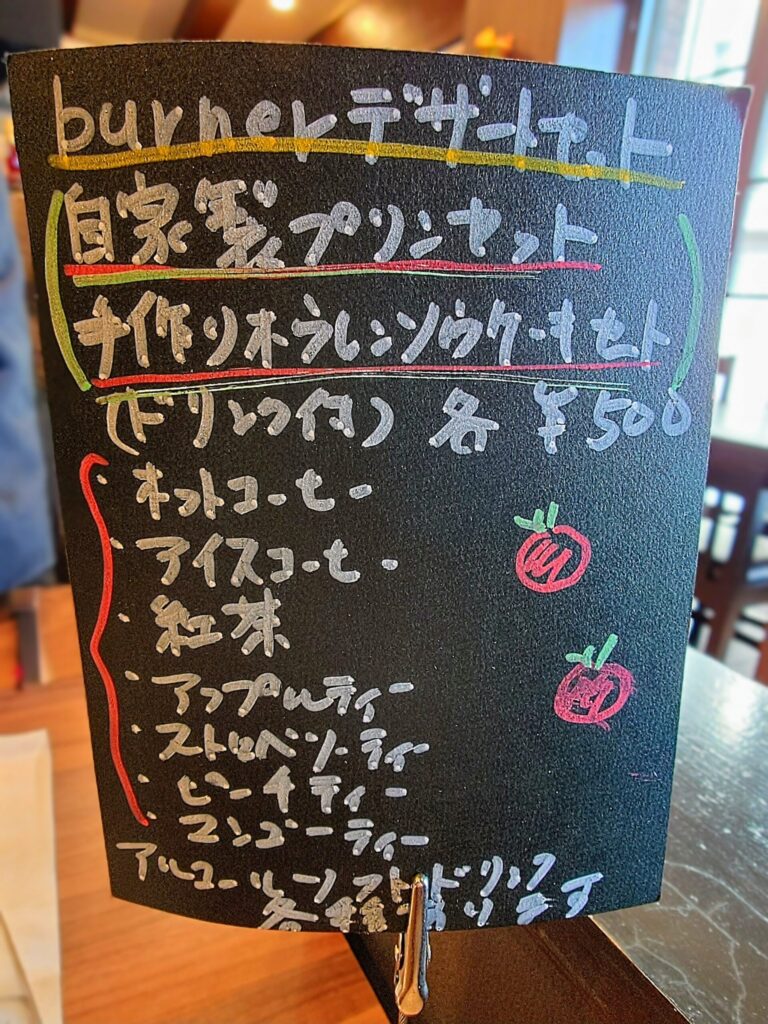 burnerデザートセット
自家製プリンセット
手作りオランジェショウケーキセット
(ドリンク付) 各 ¥500
・ホットコーヒー
・アイスコーヒー
・紅茶
・アップルティー
・ストロベリーティー
・ピーチティー
・マンゴーティー
アルコール・ソフトドリンク
各種あります